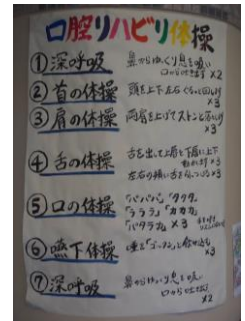 口腔リハビリ体操
①深呼吸 鼻からゆっくり息を吸い
口から吐出す ×2
②首の体操 頭を上下左右ぐるっと回します
×3
③肩の体操 両肩を上げてストンと落とします
×3
④舌の体操 舌を出して上唇と下唇に上下
×3
左右の
×3
⑤口の体操 「パパパ」「タタタ」
「ラララ」「カカカ」
「パタラカ」×3
⑥嚥下体操 唾を「ゴックン」と飲み込む
×3
⑦深呼吸 鼻からゆっくり息を吸い
口から吐出す
×2